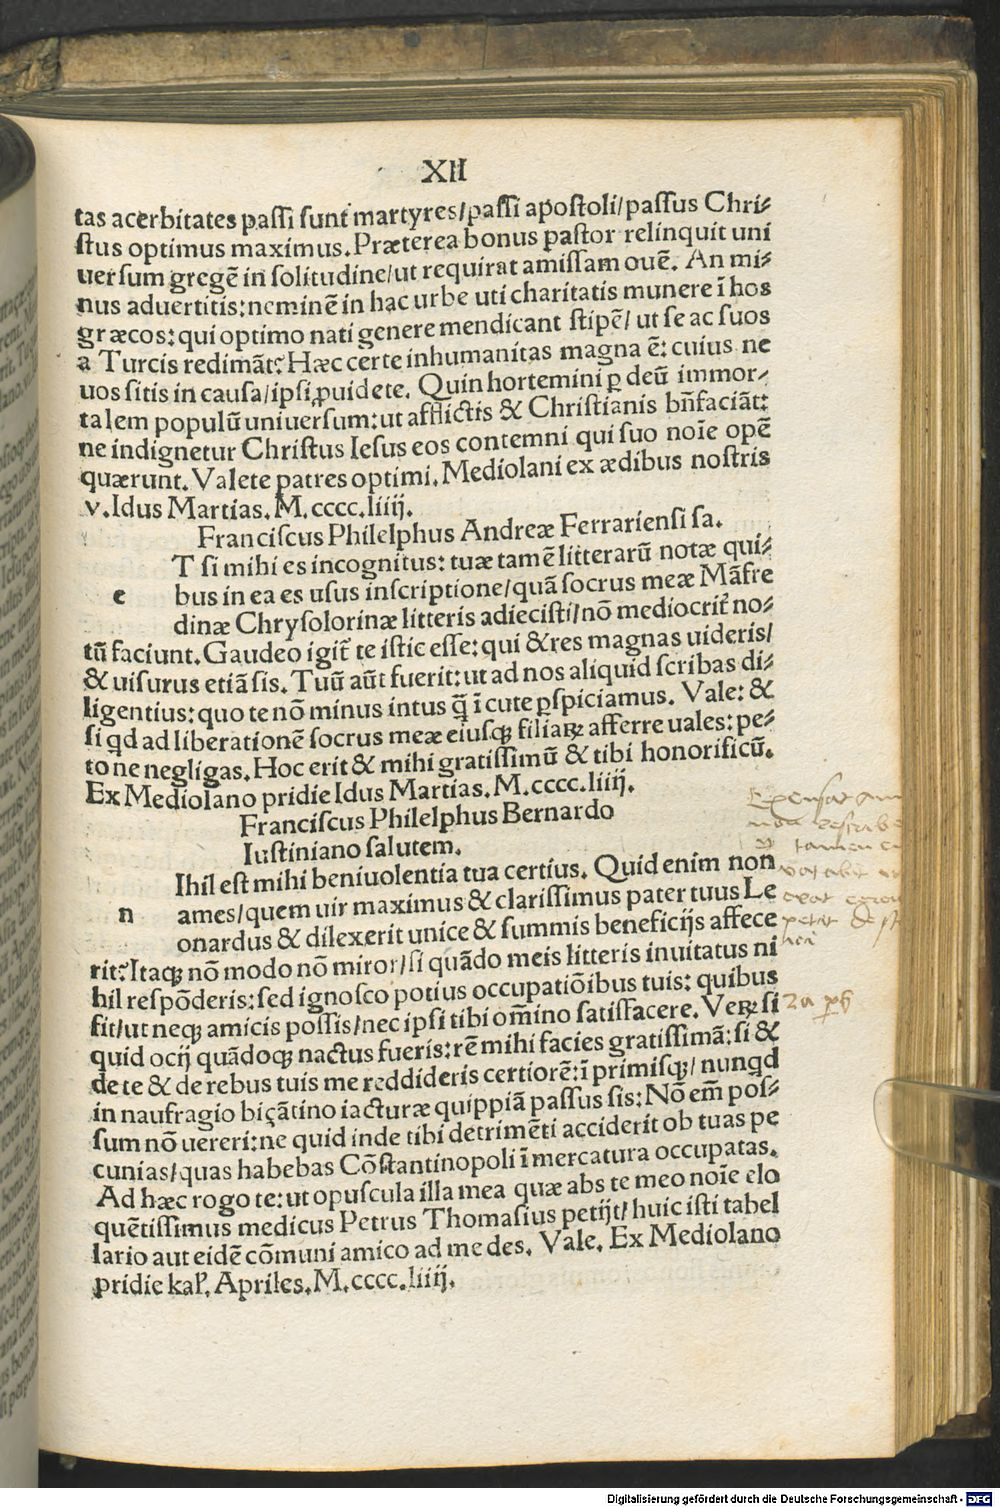 XII
tas acerbitates passi sunt martyres/passi apostoli/passus Chri⸗
stus optimus maximus. Præterea bonus pastor relinquit uni
uersum gregē in solitudine/ut requirat amissam ouē. An mi⸗
nus aduertitis: neminē in hac urbe uti charitatis munere ī hos
græcos: qui optimo nati genere mendicant stipē/ ut se ac suos
a Turcis redimāt? Hæc certe inhumanitas magna ē: cuius ne
uos sitis in causa/ipsi ꝓuidete. Quin hortemini ꝑ deū immor⸗
talem populū uniuersum: ut afflictis & Christianis bn̄faciāt:
ne indignetur Christus Iesus eos contemni qui suo noīe opē
quærunt. Valete patres optimi. Mediolani ex ædibus nostris
v. Idus Martias. M. cccc. liiij.
Franciscus Philelphus Andreæ Ferrariensi sa.
T si mihi es incognitus: tuæ tamē litterarū notæ qui⸗
e bus in ea es usus inscriptione/quā socrus meæ Māfre
dinæ Chrysolorinæ litteris adiecisti/nō mediocrit̄ no⸗
tū faciunt. Gaudeo igit̄ te istic esse: qui & res magnas uideris/
& uisurus etiā sis. Tuū aūt fuerit: ut ad nos aliquid scribas di⸗
ligentius: quo te nō minus intus q̄ ī cute ꝑspiciamus. Vale: &
si qd ad liberationē socrus meæ eiusqꝫ filiaꝝ afferre uales: pe⸗
to ne negligas. Hoc erit & mihi gratissimū & tibi honorificū.
Ex Mediolano pridie Idus Martias. M. cccc. liiij.
Franciscus Philelphus Bernardo
Iustiniano salutem.
Ihil est mihi beniuolentia tua certius. Quid enim non
n ames/quem uir maximus & clarissimus pater tuus Le
onardus & dilexerit unice & summis beneficijs affece
rit? Itaqꝫ nō modo nō miror/si quādo meis litteris inuitatus ni
hil respōderis: sed ignosco potius occupatiōibus tuis: quibus
fit/ut neqꝫ amicis possis/nec ipsi tibi om̄ino satisfacere. Veꝝ si
quid ocij quādoqꝫ nactus fueris: rē mihi facies gratissimā: si &
de te & de rebus tuis me reddideris certiorē: ī primisqꝫ/ nunqd
in naufragio biçātino iacturæ quippiā passus sis: Nō em̄ pos⸗
sum nō uereri: ne quid inde tibi detrimēti acciderit ob tuas pe
cunias/quas habebas Cōstantinopoli ī mercatura occupatas.
Ad hæc rogo te: ut opuscula illa mea quæ abs te meo noīe elo
quētissimus medicus Petrus Thomasius petijt/ huic isti tabel
lario aut eidē cōmuni amico ad me des. Vale. Ex Mediolano
pridie kaľ. Apriles. M. cccc. liiij.
Digitalisierung gefördert durch die Deutsche Forschungsgemeinschaft - DFG